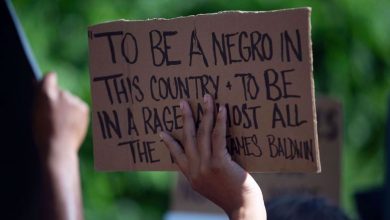 "TO BE A NEGRO IN
THIS COUNTRY + TO BE
IN A RAGE ALMOST ALL
THE
JAMES BALDWIN